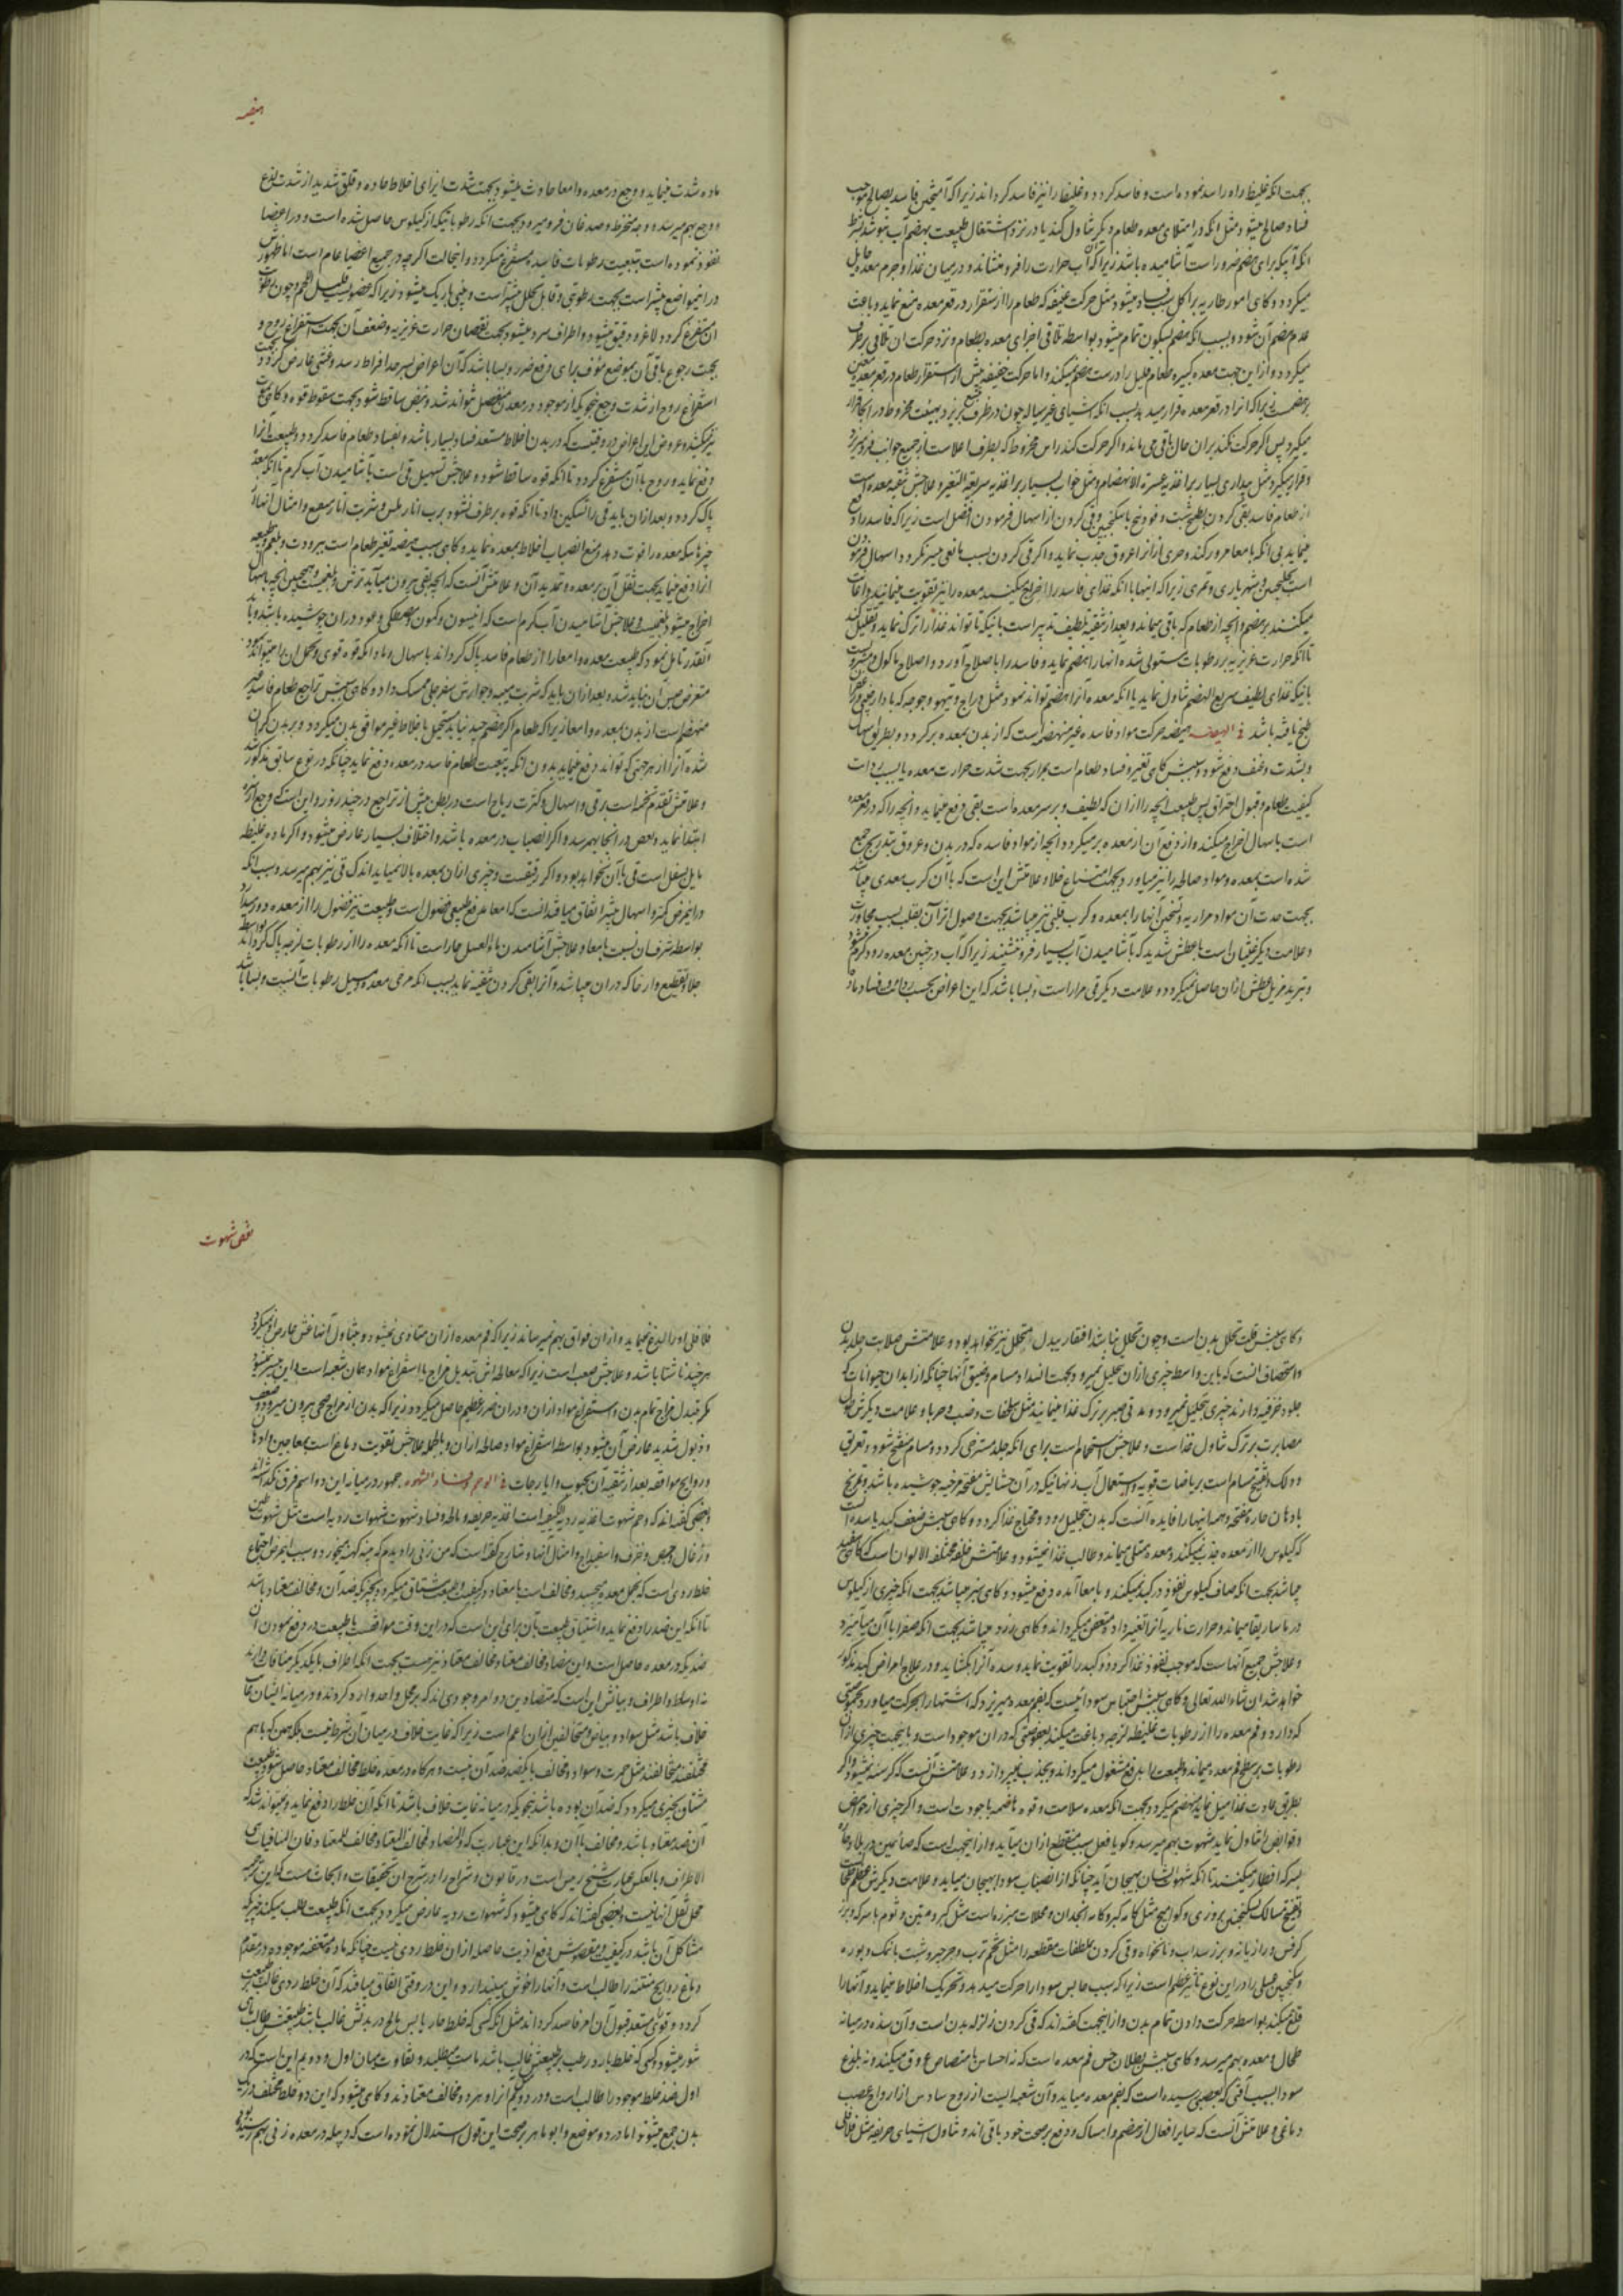 بجهت انکه غلیظ راه را سد نموده است و فاسد کردد و غلیظ را نیز فاسد کرداند زیرا که آمیختن فاسد بصالح موجب
فساد صالح میشود مثل انکه در امتلای معده طعام دیکر تناول کنند یا در نزد اشتغال طبیعت بهضم آب بنوشد بشرط
انکه آبیکه برای هضم ضرور است آشامیده باشد زیرا که آب حرارت را فرو نشاند و در میان غذا و جرم معده حایل
میکردد و کاهی امور طاریه بر اکل سبب فساد میشود مثل حرکت عنیفه که طعام را از استقرار در قعر معده منع نماید و باعث
عدم هضم آن شود و بسبب انکه هضم بسکون تمام میشود بواسطه تلاقی اجزای معده بطعام و نزد حرکت ان تلاقی برطرف
میکردد و از این جهت معده کبیره طعام قلیل را درست هضم نمیکند و اما حرکت خفیفه پیش از استقرار طعام در قعر معده معین
بر هضمست زیرا که انرا در قعر معده قرار میدهد بسبب انکه اشیای غیر سیاله چون در ظرف بریزند بهیئت مخروط در انجا قرار
میکیرد پس اکر حرکت نکند بران حال باقی می ماند و اکر حرکت کند راس مخروط که بطرف اعلاست از جمیع جوانب فرو میریزد
و قرار میکیرد و مثل بیداری بسیار بر اغذیه عسرة الانهضام و مثل خواب بسیار بر اغذیه سریعة التغیر و علاجش تنقیه معده است
از طعام فاسد بقی کردن بطبیخ شبت و فودنج با سکنجبین و قی کردن از اسهال فرمودن افضل است زیرا که فاسد را دفع
مینماید بی انکه بامعا مرور کند و چیزی از انرا عروق جذب نماید و اکر قی کردن بسبب مانعی میسر نکردد اسهال فرمودن
است بکلنجبین و شهریاری و تمری زیرا که اینها با انکه غذای فاسد را اخراج میکنند معده را نیز تقویت مینمایند و اعانت
میکنند بر هضم و انچه از طعام که باقی میماند و بعد از تنقیه تلطیف تدبیر است بانیکه تا تواند غذا را ترک نماید و تقلیل کند
تا انکه حرارت غریزیه بر رطوبات مستولی شده انها را هضم نماید و فاسد را باصلاح آورد و اصلاح ماکول و مشروبست
بانیکه غذای لطیف سریع الهضم تناول نماید یا انکه معده آنرا هضم تواند نمود مثل دراج و تیهو و جوجه که با دارچینی و زعفران
طبخ یافته باشد فی الهیضه هیضه حرکت مواد فاسده غیر منهضم است که از بدن بمعده برکردد و بطریق اسهال
و بشدت و عنف دفع شود و سببش کاهی تغیر و فساد طعام است بمرار بجهت شدت حرارت معده یا بسبب رداءت
کیفیت طعام و قبول احتراق پس طبیعت انچه را از ان که لطیف و بر سر معده است بقی دفع مینماید و انچه را که در قعر معده
است باسهال اخراج میکند و از دفع آن از معده بر میکردد و انچه از مواد فاسده که در بدن و عروق بتدریج جمع
شده است بمعده و مواد صالحه را نیز میاورد بجهت امتناع خلا و علامتش این است که با آن کرب معدی میباشد
بجهت حدت آن مواد مراریه و تسخین آنها را بمعده و کرب قلبی نیز میباشد بجهت وصول اثر آن بقلب بسبب مجاورت
و علامت دیکر غلیان است با عطش شدید که با آشامیدن آب بسیار فرو ننشیند زیرا که آب در چنین معده زود کرم میشود
و تبرید مزیل عطش از ان حاصل نمیکردد و علامت دیکر قی مرار است و بسا باشد که این اعراض بحسب رداءت و فساد ماده
هیضه
ماده شدت مینماید و وجع در معده و امعا حادث میشود بجهت شدت ایذای اخلاط حاده و قلق شدید از شدت لذع
و وجع بهم میرسد و وجه منخرط و صدغان فرو میرود بجهت انکه رطوباتیکه از کیلوس حاصل شده است و در اعضا
نفوذ نموده است بتبعیت رطوبات فاسده مستفرغ میکردد و اینحالت اکرچه در جمیع اعضا عام است اما ظهورش
در اینمواضع بیشتر است بجهت رطوبتی و قابل تحلل بیشتر است و بینی باریک میشود زیرا که عضویست قلیل اللحم و چون رطوبات
ان مستفرغ کردد لاغر و دقیق میشود و اطراف سرد میشود بجهت نقصان حرارت غریزیه و ضعف آن بجهت استفراغ روح و
بجهت رجوع باقی آن بموضع مؤف برای دفع ضرر و بسا باشد که آن اعراض بسرحد افراط رسد و غشی عارض کردد بجهت
استفراغ روح از شدت وجع نحویکه از موجود در معده منفصل تواند شد و نبض ساقط شود بجهت سقوط قوه و کاهی بموت
نیز میکشد و عروض این اعراض در وقتیست که در بدن اخلاط مستعد فساد بسیار باشد و بفساد طعام فاسد کردد و طبیعت انرا
دفع نماید و روح با آن مستفرغ کردد تا انکه قوه ساقط شود و علاجش تسهیل قی است بآشامیدن آب کرم تا انکه معده
پاک کردد و بعد از ان باید قی را تسکین داد تا انکه قوه برطرف نشود برب انار ملس و شربت انار منعنع و امثال انها از
چیزهائیکه معده را قوت دهد و منع انصباب اخلاط بمعده نماید و کاهی سبب هیضه تغیر طعام است ببرودت و بلغم و طبیعت
انرا دفع مینماید بجهت ثقل آن بر معده و تمدید آن و علامتش آنست که انچه بقی بیرون میآید ترش و بلغمیست و همچنین انچه باسهال
اخراج میشود بلغمیست و علاجش آشامیدن آب کرم است که انیسون و کمون و مصطکی و عود در ان جوشیده باشد و تا
انقدر تامل نمود که طبیعت معده و امعا را از طعام فاسد پاک کرداند باسهال و مادام که قوه قوی و تحمل ان را میتواند کرد
متعرض حبس آن نباید شد و بعد از ان باید که شربت میبه و جوارش سفرجلی ممسک داد و کاهی سببش تراجع طعام فاسد غیر
منهضم است از بدن بمعده و امعا زیرا که طعام اکر هضم جید نیابد مستحیل باخلاط غیر موافق بدن میکردد و بر بدن کران
شده آنرا از هر جهتی که تواند دفع مینماید بدون انکه بتبعیت طعام فاسد در معده دفع نماید چنانکه در نوع سابق مذکور شد
و علامتش تقدم تخمه است بر قی و اسهال و کثرت ریاح است در بطن پیش از تراجع در چند روز و این است که وجع از ناف
ابتدا نماید و مغص در انجا بهم رسد و اکر انصباب در معده باشد و اختلاف بسیار عارض میشود و اکر ماده غلیظه
مایل بسفل است قی با آن نخواهد بود و اکر رقیقست و چیزی از ان بمعده بالا نمیاید اندک قی نیز بهم میرسد و سبب انکه
در اینمرض کثرة اسهال بیشتر اتفاق میافتد انست که امعا مدفع طبیعی فضول است و طبیعت نیز فضول را از معده دور میدارد
بواسطه شرف ان نسبت بامعا و علاجش آشامیدن ماء العسل حار است تا انکه معده را از رطوبات لزجه پاک کرداند بواسطه
جلا و تقطیع و ارخا که دران میباشد و آنرا بقی کردن تنقیه نماید بسبب انکه مرخی معده و مسیل رطوبات آنست و بسا باشد
و کاهی سببش قلت تحلل بدن است و چون تحلل نباشد افتقار ببدل ما یتحلل نیز نخواهد بود و علامتش صلابت جلد بدن
و استحصاف انست که باین واسطه چیزی از ان تحلیل نمیرود بجهت انسداد مسام و ضیق آنها چنانکه از ابدان حیوانات که
جلود خزفیه دارند چیزی بتحلیل نمیرود و مدتی صبر بر ترک غذا مینمایند مثل سلحفات و ضب و حربا و علامت دیکرش طول
مصابرت بر ترک تناول غذاست و علاجش استحمام است برای انکه جلد مسترخی کردد و مسام منفتح شود و تعریق
و دلک و تفتیح مسام است بریاضات قویه و استعمال آب زنهائیکه در آن حشایش مفتحه مرخیه جوشیده باشد و تمریخ
بادهان حاره مفتحه و همه اینها را فایده آنست که بدن بتحلیل رود و محتاج غذا کردد و کاهی سببش ضعف کبد یا سده است
که کیلوس را از معده جذب نمیکند و معده ممتلی میماند و طالب غذا نمیشود و علامتش خلفه مختلفه الالوان است که کاهی سفید
میباشد بجهت انکه صاف کیلوس نفوذ در کبد نمیکند و بامعا آمده دفع میشود و کاهی سبز میباشد بجهت انکه چیزی از کیلوس
در ماساریقا میماند و حرارت ناریه آنرا تغییر داده متعفن میکرداند و کاهی زرد میباشد بجهت انکه صفرا با آن میآمیزد
و علاجش جمیع آنها است که موجب نفوذ غذا کردد و کبد را تقویت نماید و سده آنرا بکشاید و در علاج امراض کبد مذکور
خواهد شد ان شاء الله تعالی و کاهی سببش احتباس سودائیست که بفم معده میریزد که اشتها را بحرکت میاورد بحموضتی
که دارد و فم معده را از رطوبات غلیظه لزجه دباغت میکند بعفوصتی که دران موجود است و باینجهت چیزی از ان
رطوبات بر سطح فم معده میماند و طبیعت را بدفع مشغول میکرداند و بجذب نمیپردازد و علامتش آنست که کرسنه نمیشود و اکر
بطریق عادت غذا میل نماید هضم میکردد بجهت انکه معده سلامت و قوه هاضمه با جودت است و اکر چیزی از حوامض
و قوابض تناول نماید شهوت بهم میرسد و کویا فعل سبب منقطع ازان میآید و از اینجهت است که صائمین در بلاد حاره
بسرکه افطار میکنند تا انکه شهوتشان بهیجان آید چنانکه از انصباب سودا بهیجان میاید و علامت دیکرش عظم طحال
و تفتیح مسالک بسکنجبین بزوری و کوامیج مثل کامه کبر و کامه انجدان و محللات مبزره است مثل کبر و متین و ثوم با سرکه و بزر
کرفس و رازیانه و بزر سداب و نانخواه و قی کردن بملطفات مقطعه را مثل تخم ترب و جرجیر و شبت بانمک و بوره
و سکنجبین عسلی را در این نوع تاثیر عظیم است زیرا که سبب حابس سودا را حرکت میدهد و تحریک اخلاط مینماید و آنها را
قلع میکند بواسطه حرکت دادن تمام بدن و از اینجهت کفته اند که قی کردن زلزله بدن است و آن سده در میانه
طحال و معده بهم میرسد و کاهی سببش بطلان حس فم معده است که نه احساس بامتصاص عروق میکند و نه بلذع
سودا بسبب آفتی که بعصبی رسیده است که بفم معده میاید و آن شعبه ایست از زوج سادس از ازواج عصب
دماغی و علامتش آنست که سایر افعال از هضم و امساک و دفع بر صحت خود باقی اند و تناول اشیای حریفه مثل فلافلی
نقص شهوت
فلافلی او را لذع نمینماید و ازان فواق بهم نمیرساند زیرا که فم معده ازان متاذی نمیشود و بتناول آنها غشی عارض او میکردد
هرچند ناشتا باشد و علاجش صعب است زیرا که معالجه اش تبدیل مزاج با استفراغ مواد همان شعبه است و این میسر نمیشود
مکر بتبدل مزاج تمام بدن و استفراغ مواد ازان و دران ضرر عظیم حاصل میکردد زیرا که بدن از مزاج صحی بیرون میرود و ضعف
و ذبول شدید عارض آن میشود بواسطه استفراغ مواد صالحه ازان و بالجمله علاجش تقویت دماغ است بمعاجین و ادهان
و روایح موافقه بعد از تنقیه آن بحبوب و ایارجات فی الوحم و فساد الشهوه جمهور در میانه این دو اسم فرق نکذاشته اند
و بعضی کفته اند که وحم شهوت اغذیه ردیه الکیفیه است اغذیه حریفه و مالحه و فساد شهوت شهوات ردیه است مثل شهوت طین
و زغال و جص و خزف و اسفیداج و امثال آنها و شارح کفته است که من زنی را دیدم که پنبه کهنه میخورد و سبب اینمرض اجتماع
خلط ردی است که بخمل معده میچسبد و مخالف است با معتاد در کیفیت و طبیعت مشتاق میکردد بچیزیکه ضد آن و مخالف معتاد باشد
تا انکه این ضد را دفع نماید و اشتیاق طبیعت بآن برای این است که در این وقت موافقست با طبیعت در دفع نمودن آن
ضدیکه در معده حاصل است و این مضاد مخالف معتاد و مخالف معتاد نیز هست بجهت انکه اطراف با یکدیکر منافات دارند
نه اوساط و اطراف و بیانش این است که متضادین دو امر وجودی اند که بر محل واحد وارد کردند و در میانه ایشان غایت
خلاف باشد مثل سواد و بیاض و متخالفین ازان اعم است زیرا که غایت خلاف در میان آن شرط نیست بلکه همین که با هم
مختلفند متخالفند مثل حمرت و سواد و مخالف یا یکضد ضد آن نیست و هرکاه در معده خلط مخالف معتاد حاصل شود طبیعت
مشتاق بچیزی میکردد که ضد آن بوده باشد بنحویکه در میانه غایت خلاف باشد تا انکه آن خلط را دفع نماید و نمیتواند شد که
آن ضد معتاد باشد و مخالف با آن و بدانکه این عبارت که و المضاد لمخالف المعتاد مخالف للمعتاد فان المنافیات هی
الاطراف و بالعکس عبارت شیخ رئیس است در قانون و شراح را در شرح ان تحقیقات و ابحاث هست که این مختصر
محل نقل آنها نیست و بعضی کفته اند که کاهی میشود که شهوات ردیه عارض میکردد بجهت انکه طبیعت طلب میکند چیزیرا که
مشاکل آن باشد در کیفیت و مقصودش دفع اذیت حاصله ازان خلط ردی نیست چنانکه ماده متعفنه موجوده در مقدم
دماغ روایح منتنه را طالب است و آنها را خوش میپندارد و این در وقتی اتفاق میافتد که آن خلط ردی غالب بر طبیعت
کردد و قوی مستعد قبول آن امر فاسد کرداند مثل انکه کسی که خلط حار یابس مالح در بدنش غالب باشد طبیعتش طالب مالح
شور میشود و کسی که خلط بارد رطب بر طبیعتش غالب باشد ماست میطلبد و تفاوت میان اول و دویم این است که در
اول ضد خلط موجود را طالب است و در دویم از او هر دو مخالف معتادند و کاهی میشود که این دو خلط مختلف در یک
بدن جمع میشوند اما در دو موضع و ابو ماهر بر صحت این قول استدلال نموده است که دبیله در معده زنی بهم رسیده بود